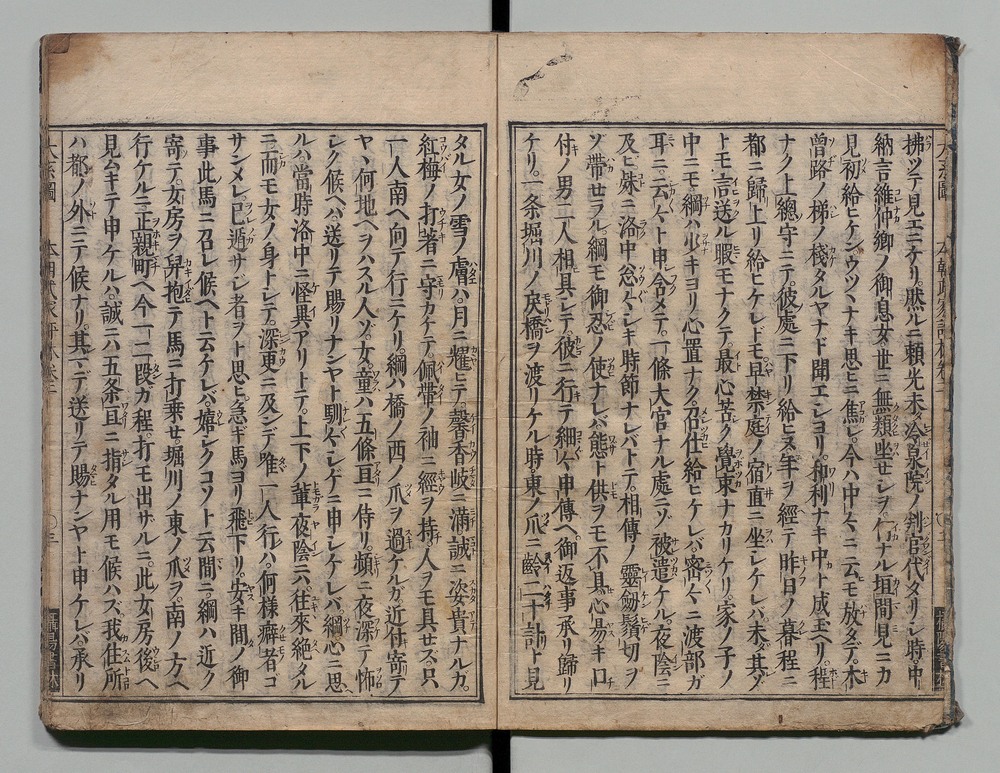 拂ツテ見エニケリ。然ルニ頼光未タ冷泉院ノ判官代タリシ時。中
納言維仲卿ノ御息女世ニ無類坐セシヲ。イカナル垣間見ニカ
見初給ヒケン。ウツヽナキ思ヒニ焦レ。今ハ中〻ニ云モ放タデ。木
曽路ノ梯ノ棧タルヤナド聞エシヨリ。和利ナキ中ト成玉ヘリ。程
ナク上總守ニテ。彼處ニ下リ給ヒヌ。年ヲ經テ昨日ノ暮程ニ
都ニ歸上リ給ヒケレドモ。早禁庭ノ宿直ニ坐シケレバ。未其ヿ
トモ言送ル暇モナクテ。最心苦ク覺束ナカリケリ。家ノ子ノ
中ニモ綱ハ少キヨリ心置ナク召仕給ヒケレバ。密〻ニ渡部ガ
耳ニ云〻ト申含メテ。一條大宮ナル處ニゾ被遣ケル。夜陰ニ
及ヒ殊ニ洛中忩〻シキ時節ナレバトテ。相傳ノ靈劔鬚切ヲ
ゾ帶セラル。綱モ御忍ノ使ナレバ。態ト供ヲモ不具。心易キ口
付ノ男二人相具シテ。彼ニ行テ細〻申傳ヘ。御返事承リ歸リ
ケリ。一条堀川ノ戻橋ヲ渡リケル時。東ノ爪ニ齡二十計ト見
タル女ノ雪ノ膚ハ。月ニ耀ヒテ。馨香岐ニ滿。誠ニ姿貴ナルカ。
紅梅ノ打著ニ守カケテ。佩帶ノ袖ニ經ヲ持。人ヲモ具セズ。只
一人南ヘ向テ行ニケリ。綱ハ橋ノ西ノ爪ヲ過ケルガ。近付寄テ
ヤヽ何地ヘヲハスル人ゾ。女童ハ五條亘ニ侍リ。頻ニ夜深テ怖
シク候ヘハ。送リテ賜リナンヤト馴〻シゲニ申シケレバ。綱心ニ思
ルハ。當時洛中ニ怪異アリトテ。上下ノ輩夜陰ニハ往來絶タル
ニ。而モ女ノ身トシテ。深更ニ及ンデ唯一人行ハ。何様癖者コ
サンメレ。已遁サシ者ヲト思ヒ。急キ馬ヨリ飛下リ。安キ間ノ御
事此馬ニ召レ候ヘト云ケレバ。嬉シクコソト云間ニ。綱ハ近ク
寄テ女房ヲ兒抱テ馬ニ打乗セ。堀川ノ東ノ爪ヲ南ノ方ヘ
行ケルニ。正親町ヘ今一二段ガ程。打モ出サヾルニ。此女房後ヘ
見ムキテ申ケルハ。誠ニハ五条亘ニ指タル用モ候ハズ。我住所
ハ都ノ外ニテ候ナリ。其マデ送リテ賜ナンヤト申ケレバ。承リ